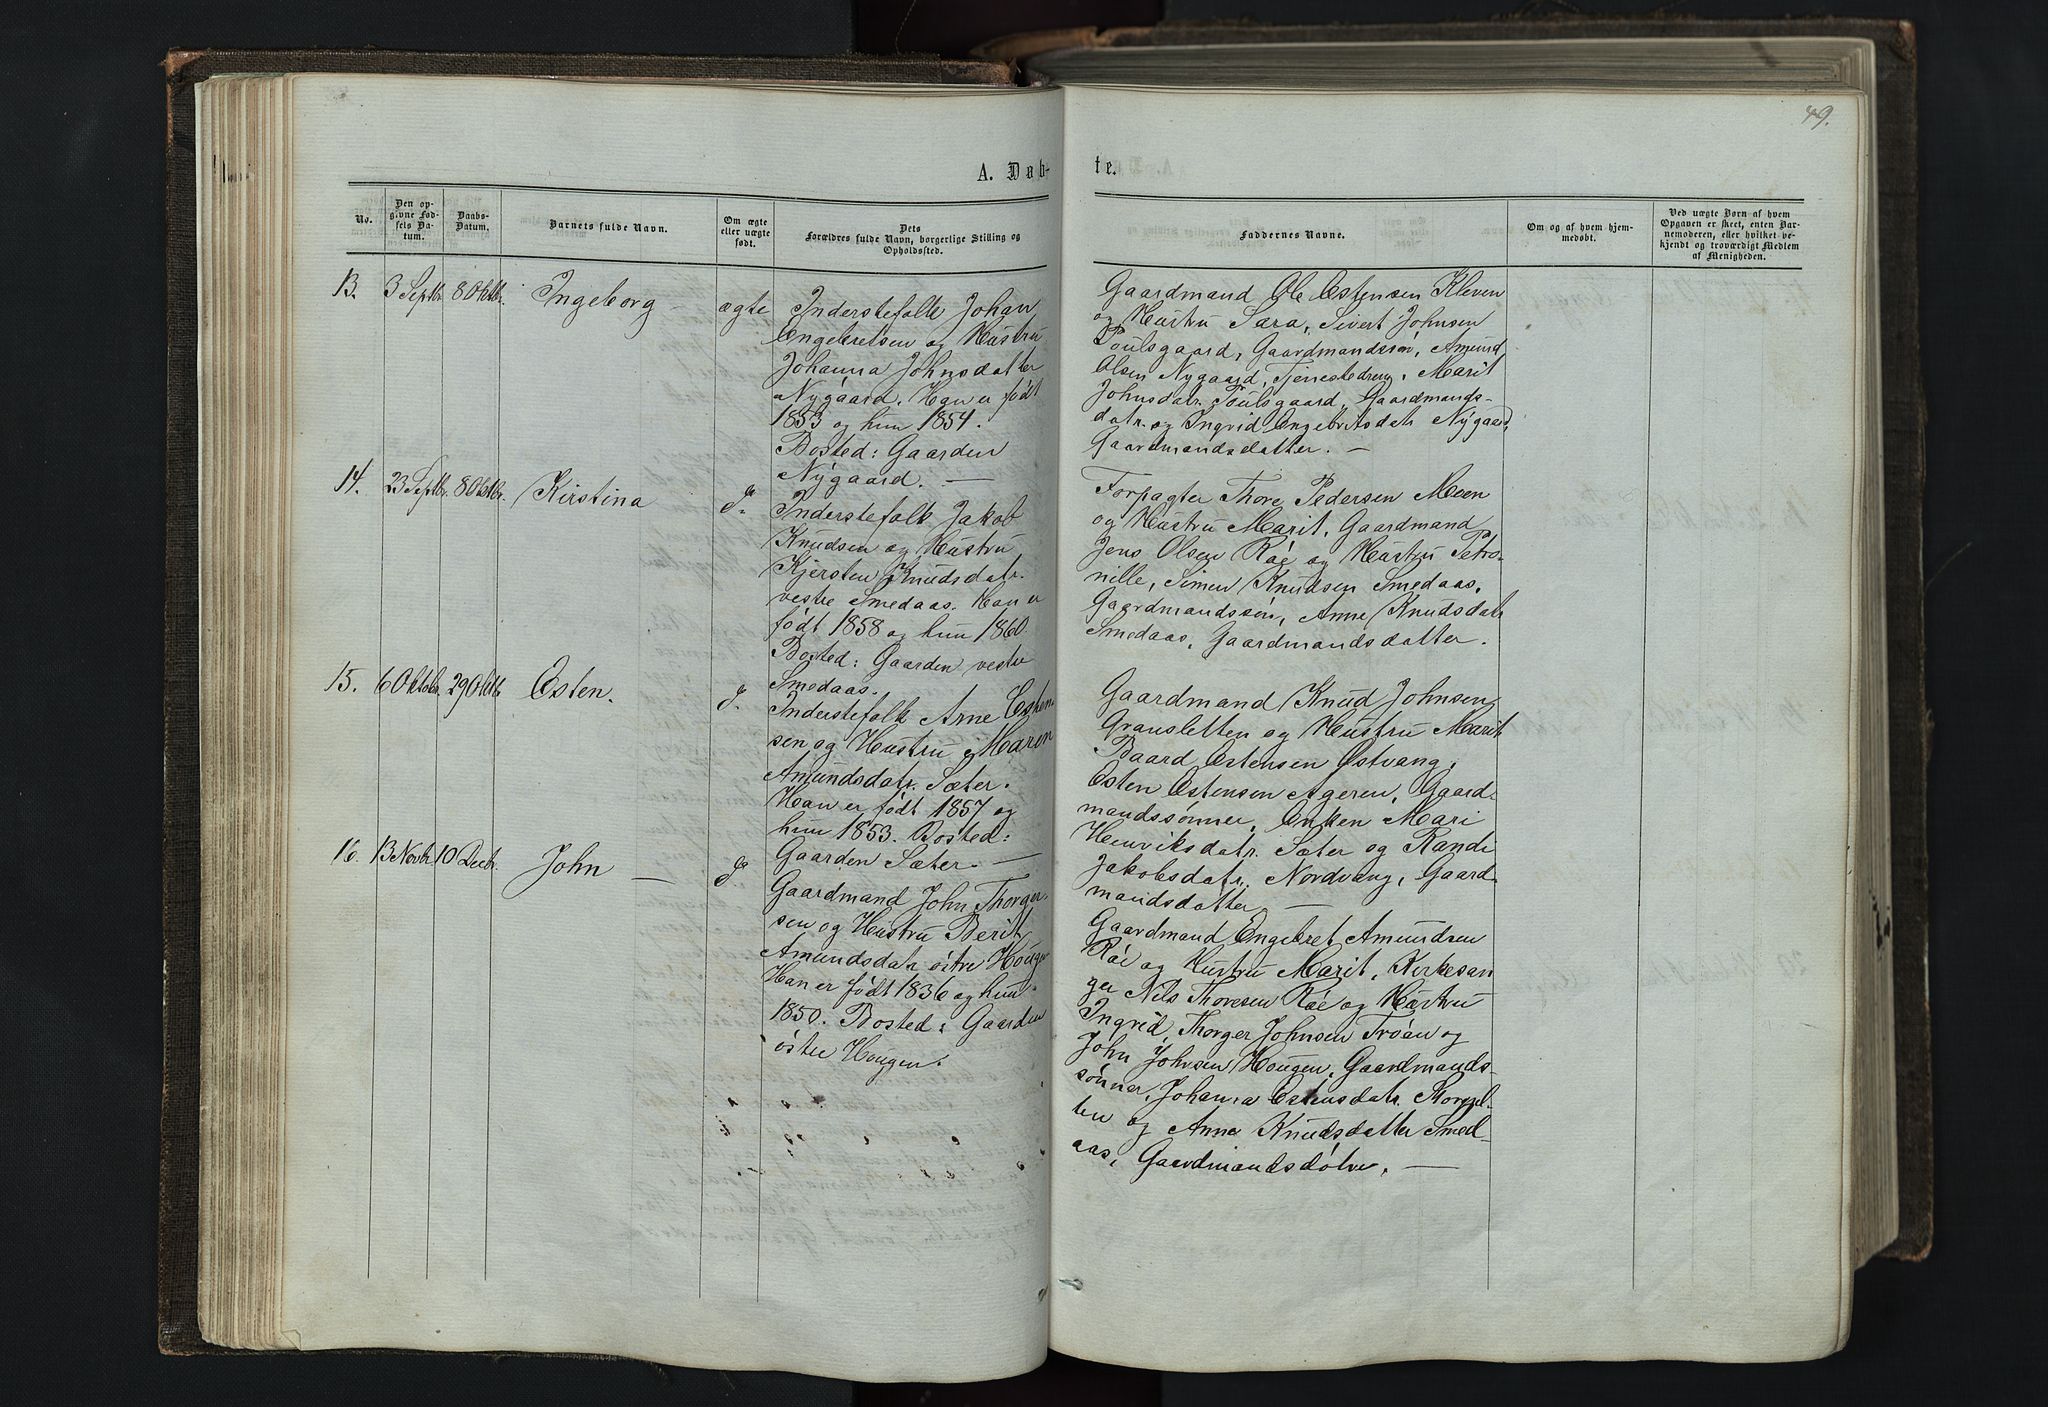 49.
A. Døb-
te.
No.
Den op-
givne Fød-
sels Da-
tum.
Daabs-
Datum.
Barnets fulde Navn.
Om ægte
eller uægte
født.
Dets
Forældres fulde Navn, borgerlige Stilling og
Opholdssted.
Faddernes Navne.
Om og af hvem hjem-
medøbt.
Ved uægte Børn af hvem
Opgaven er skeet, enten Bar-
nemoderen, eller hvilket be-
kjendt og troværdigt Medlem
af Menigheden.
13.
3 Septbr.
8 Oktbr.
Ingeborg
ægte
Inderstefolk Johan
Engebretsen og Hustru
Johanna Johnsdatter
Nygaard. Han er født
1853 og hun 1854.
Bosted: Gaarden
Nygaard. —
Gaardmand Ole Estensen Kleven
og Hustru Sara, Sivert Johnsen
Poulsgaard, Gaardmandssøn, Amund
Olsen Nygaard, Tjenestedreng, Marit
Johnsdatr. Poulsgaard, Gaardmands-
datr. og Ingrid Engebritsdatr Nygaard,
Gaardmandsdatter. —
14.
23 Septbr.
8 Oktbr.
Kirstina
do.
Inderstefolk Jakob
Knudsen og Hustru
Kjersten Knudsdatr.
vestre Smedaas. Han er
født 1858 og hun 1860.
Bosted: Gaarden vestre
Smedaas.
Forpagter Thore Pedersen Moen
og Hustru Marit, Gaardmand
Jens Olsen Røe og Hustru Petro-
nille, Simen Knudsen Smedaas,
Gaardmandssøn, Anne Knudsdatr
Smedaas, Gaardmandsdatter.
15.
6 Oktobr.
29 Oktb.
Esten.
do.
Inderstefolk Arne Esten-
sen og Hustru Maren
Amundsdatr. Sæter.
Han er født 1857 og
hun 1853. Bosted:
Gaarden Sæter. —
Gaardmand Knud Johnsen
Gransletten og Hustru Marit
Baard Estensen Østvang,
Esten Estensen Ageren, Gaard-
mandssønner, Enken Mari
Henriksdatr. Sæter og Randi
Jakobsdatr. Nordvang, Gaard-
mandsdatter —
16.
13 Novbr.
10 Decbr.
John —
do
Gaardmand John Thorger-
sen og Hustru Berit
Amundsdatr østre Hougen
Han er født 1836 og hun
1850. Bosted: Gaarden
østre Hougen.
Gaardmand Engebret Amundsen
Røe og Hustru Marit, Kirkesan-
ger Nils Thoresen Røe og Hustru
Ingrid, Thorger Johnsen Trøan og
John Johnsen Hougen, Gaardmands-
sønner, Johanna Estensdatr.
og Anne Knudsdatter Smed-
aas, Gaardmandsdøtre. —